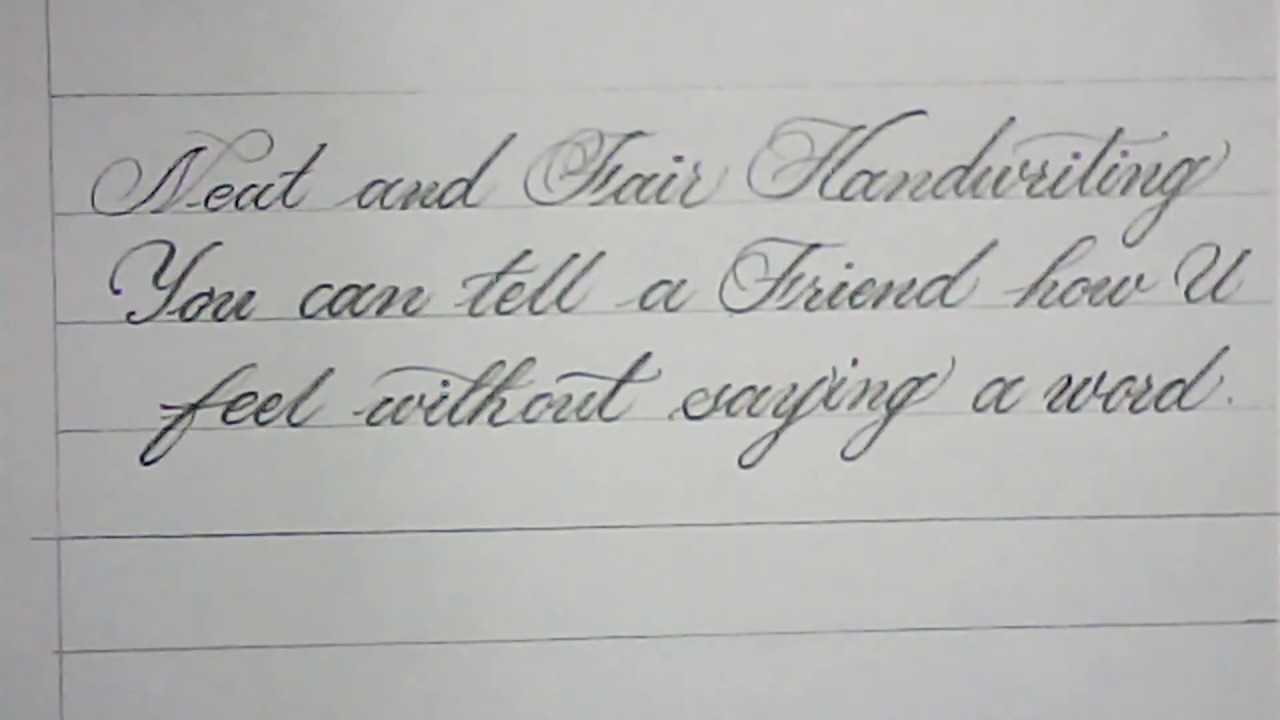 Neat and Fair Handwriting
You can tell a Friend how U
feel without saying a word.